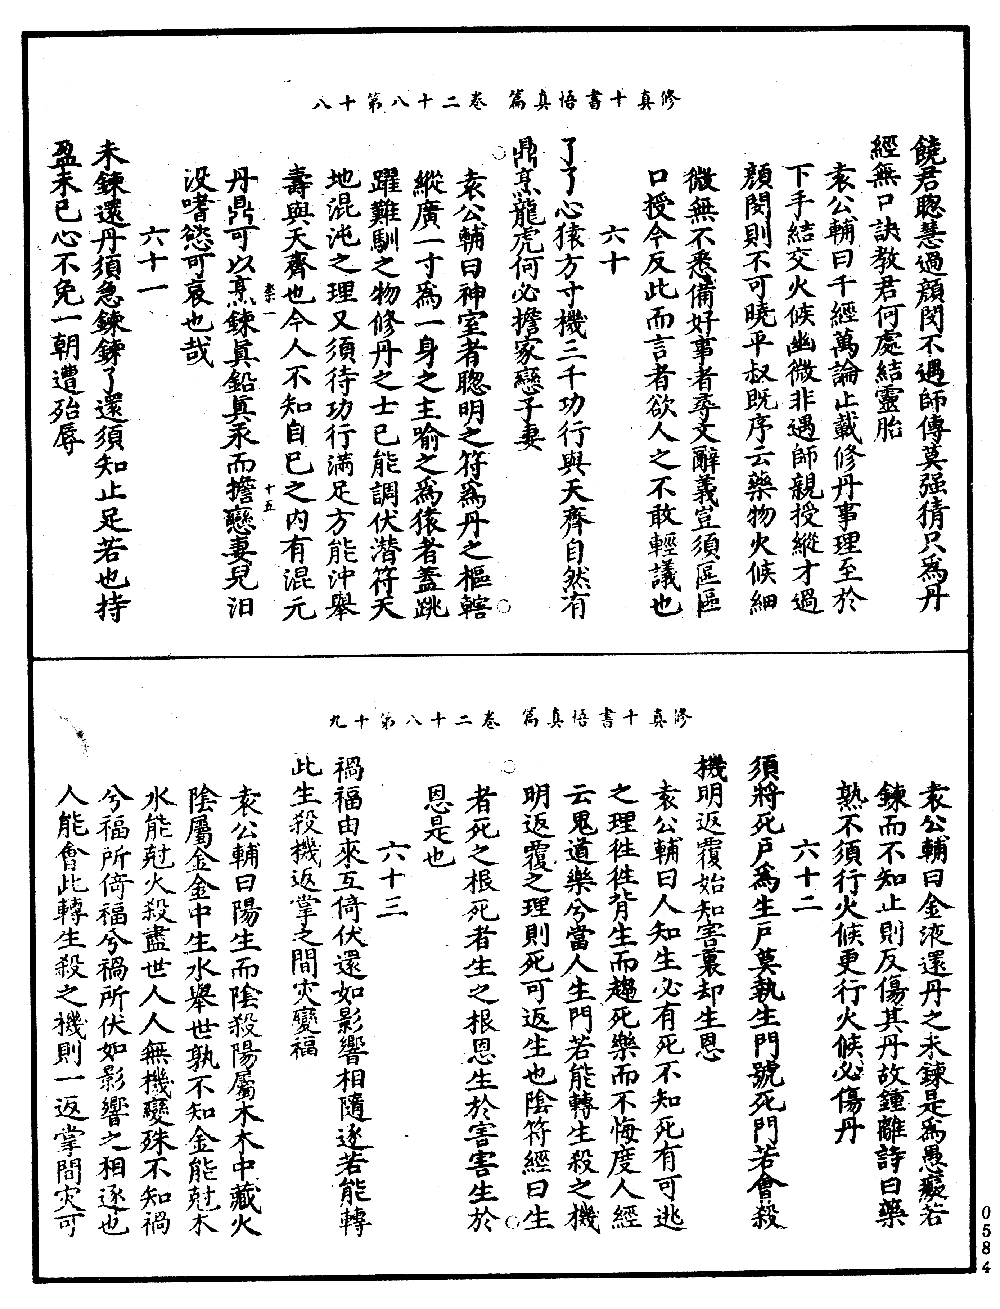 修真十書悟真篇　卷二十八第十八
饒君聰慧過顏閔不遇師傳莫强猜只為丹
經無口訣教君何處結靈胎
袁公輔曰千經萬論止載修丹事理至於
下手結交火候幽微非遇師親授縱才過
顏閔則不可曉平叔既序云藥物火候細
微無不悉備好事者尋文辭義豈須區區
口授今反此而言者欲人之不敢輕議也
六十
了了心猿方寸機三千功行與天齊自然有
鼎烹龍虎何必擔家戀子妻
袁公輔曰神室者聰明之符為丹之樞轄
縱廣一寸為一身之主喻之為猿者蓋跳
躍難馴之物修丹之士已能調伏潛符天
地混沌之理又須待功行滿足方能沖舉
壽與天齊也今人不知自己之內有混元
丹鼎可以烹鍊眞鉛眞汞而擔戀妻兒汩
沒嗜慾可哀也哉
六十一
未鍊還丹須急鍊鍊了還須知止足若也持
盈未已心不免一朝遭殆辱
修真十書悟真篇　卷二十八第十九
袁公輔曰金液還丹之未鍊是為愚癡若
鍊而不知止則反傷其丹故鍾離詩曰藥
熟不須行火候更行火候必傷丹
六十二
須將死戶為生戶莫執生門號死門若會殺
機明返覆始知害裏却生恩
袁公輔曰人知生必有死不知死有可逃
之理徃徃背生而趨死樂而不悔度人經
云鬼道樂兮當人生門若能轉生殺之機
明返覆之理則死可返生也陰符經曰生
者死之根死者生之根恩生於害害生於
恩是也
六十三
禍福由來互倚伏還如影響相隨逐若能轉
此生殺機返掌之間灾變福
袁公輔曰陽生而陰殺陽屬木木中藏火
陰屬金金中生水舉世孰不知金能尅木
水能尅火殺盡世人人無機變殊不知禍
兮福所倚福兮禍所伏如影響之相逐也
人能會此轉生殺之機則一返掌間灾可
0584